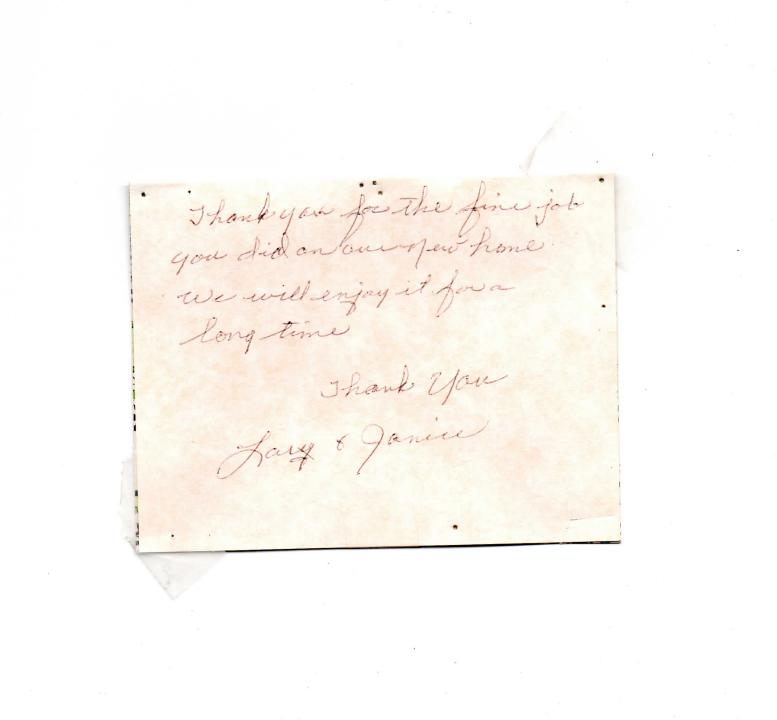 Thank you for the fine job
you did on our new home
We will enjoy it for a
long time
Thank You
Lary & Janice